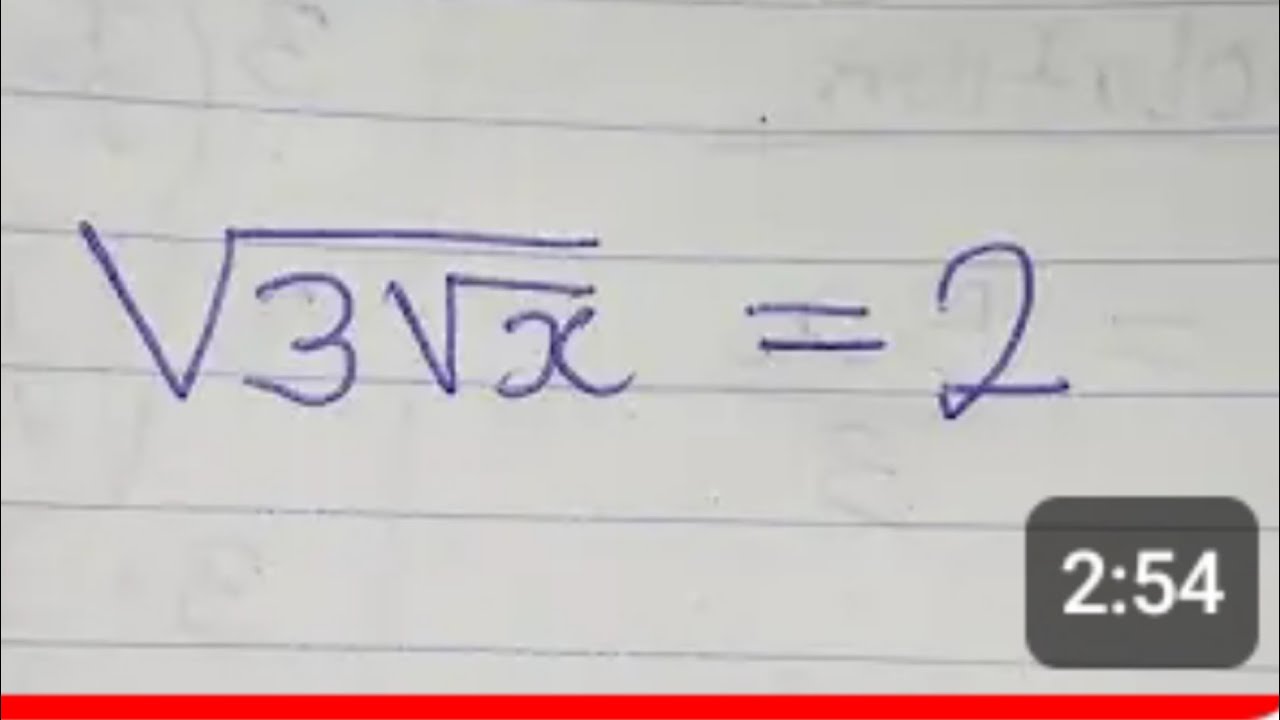 √(3√x) = 2
2:54